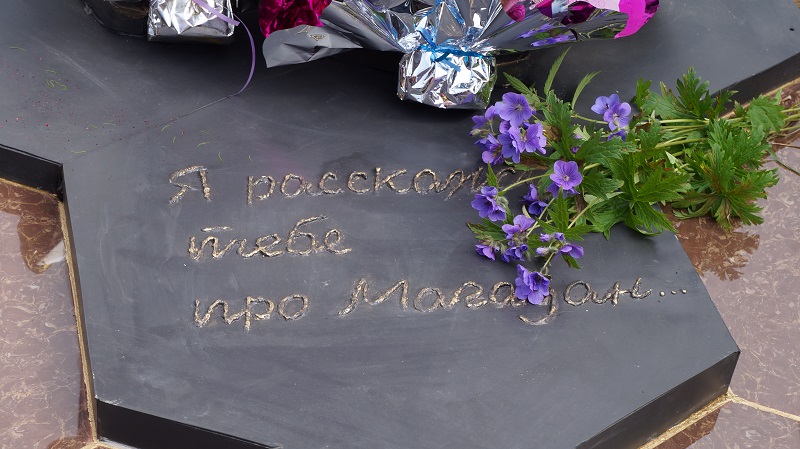 Я расскажу
тебе
про Магадан...